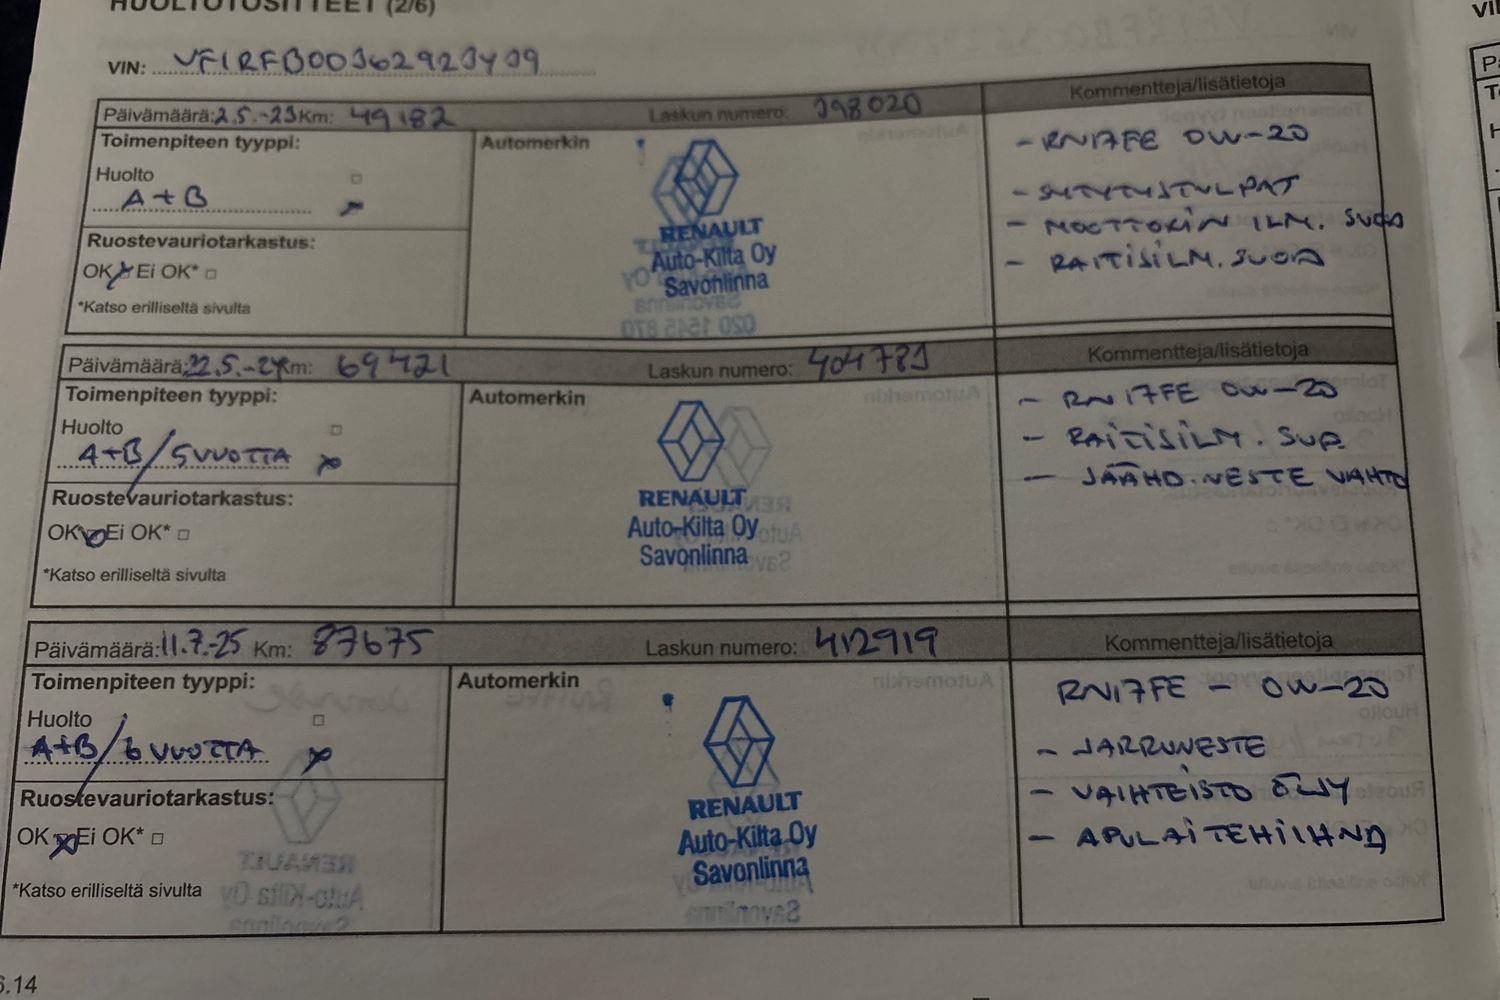 HUOLTOTOSITTEET (2/6)
VIN: VF1RFB00362923409
Päivämäärä: 2.5.-23 Km: 49182 Laskun numero: 398020 Kommentteja/lisätietoja
Toimenpiteen tyyppi: Automerkin
Huolto
A+B
Ruostevauriotarkastus:
OK Ei OK*
*Katso erilliseltä sivulta
RENAULT
Auto-Kilta Oy
Savonlinna
- RN17FE 0W-20
- SYTYTYSTULPAT
- MOOTTORIN ILM. SUOD
- RAITISILM. SUOD
Päivämäärä: 22.5.-24 Km: 69421 Laskun numero: 404783 Kommentteja/lisätietoja
Toimenpiteen tyyppi: Automerkin
Huolto
A+B/5 VUOTTA
Ruostevauriotarkastus:
OK Ei OK*
*Katso erilliseltä sivulta
RENAULT
Auto-Kilta Oy
Savonlinna
- RN17FE 0W-20
- RAITISILM. SUO.
- JÄÄHD.NESTE VAHTO
Päivämäärä: 11.7.-25 Km: 87675 Laskun numero: 412919 Kommentteja/lisätietoja
Toimenpiteen tyyppi: Automerkin
Huolto
A+B/6 VUOTTA
Ruostevauriotarkastus:
OK Ei OK*
*Katso erilliseltä sivulta
RENAULT
Auto-Kilta Oy
Savonlinna
RN17FE - 0W-20
- JARRUNESTE
- VAIHTEISTO ÖLJY
- APULAITEHIHNA
6.14